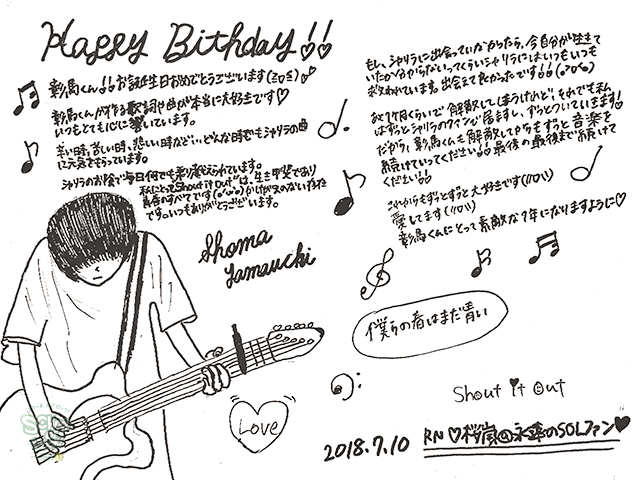 Happy Birthday!!
彰馬くん!!お誕生日おめでとうございます(≧o≦)♡
彰馬くんが作る歌詞や曲が本当に大好きです♡
いつもとても心に響いています。
辛い時、苦しい時、悲しい時など…どんな時でもシャリラの曲
に元気をもらっています。
シャリラのお陰で毎日何でも乗り越えられています。
私にとってShout it Outは、生き甲斐であり
青春のすべてです(o^ω^o)かけがえのない存在
です。いつもありがとうございます。
Shoma
Yamauchi
もし、シャリラに出会っていなかったら、今自分が生きて
いたか分からないってくらいシャリラにはいつもいつも
救われています。出会えて良かったです!!
あと1ヶ月くらいで解散してしまうけれど、それでも私
はずっとシャリラのファンで居ますし、ずっとついていきます!
だから、彰馬くんも解散してからもずっと音楽を
続けていってください!!最後の最後まで続けて
ください!!
これからもずっとずっと大好きです
愛してます
彰馬くんにとって素敵な1年になりますように♡
僕らの春はまだ青い
Love
Shout it Out
2018.7.10
RN♡桜嵐@永傘のSOLファン♥